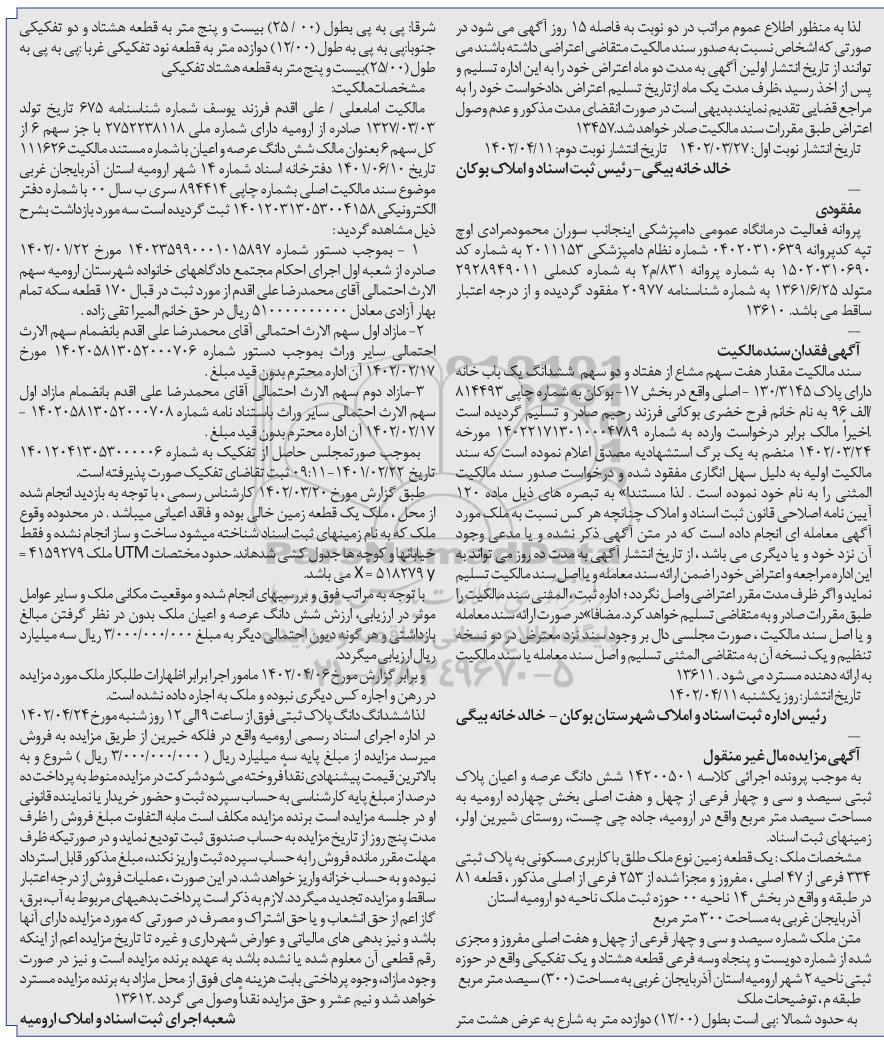 لذا به منظور اطلاع عموم مراتب در دو نوبت به فاصله ۱۵ روز آگهی می شود در
صورتی که اشخاص نسبت به صدور سند مالکیت متقاضی اعتراضی داشته باشند می
توانند از تاریخ انتشار اولین آگهی به مدت دو ماه اعتراض خود را به این اداره تسلیم و
پس از اخذ رسید ،ظرف مدت یک ماه ازتاریخ تسلیم اعتراض ،دادخواست خود را به
مراجع قضایی تقدیم نمایند.بدیهی است در صورت انقضای مدت مذکور و عدم وصول
اعتراض طبق مقررات سند مالکیت صادر خواهد شد.۱۳۴۵۷
تاریخ انتشار نوبت اول: ۱۴۰۲/۰۳/۲۷ تاریخ انتشار نوبت دوم: ۱۴۰۲/۰۴/۱۱
خالد خانه بیگی-رئیس ثبت اسناد و املاک بوکان
مفقودی
پروانه فعالیت درمانگاه عمومی دامپزشکی اینجانب سوران محمودمرادی اوچ
تپه کدپروانه ۰۴۰۲۰۳۱۰۶۳۹ شماره نظام دامپزشکی ۲۰۱۱۱۵۳ به شماره کد
۱۵۰۲۰۳۱۰۶۹۰ به شماره پروانه ۸۳۱/م۲ به شماره کدملی ۲۹۲۸۹۴۹۰۱۱
متولد ۱۳۶۱/۶/۲۵ به شماره شناسنامه ۲۰۹۷۷ مفقود گردیده و از درجه اعتبار
ساقط می باشد. ۱۳۶۱۰
آگهی فقدان سند مالکیت
سند مالکیت مقدار هفت سهم مشاع از هفتاد و دو سهم ششدانگ یک باب خانه
دارای پلاک ۱۳۰/۳۱۴۵ -اصلی واقع در بخش ۱۷-بوکان به شماره چاپی ۸۱۴۴۹۳
/الف ۹۶ به نام خانم فرح خضری بوکانی فرزند رحیم صادر و تسلیم گردیده است
.اخیراً مالک برابر درخواست وارده به شماره ۱۴۰۲۲۱۷۱۳۰۱۰۰۰۴۷۸۹ مورخه
۱۴۰۲/۰۳/۲۴ منضم به یک برگ استشهادیه مصدق اعلام نموده است که سند
مالکیت اولیه به دلیل سهل انگاری مفقود شده و درخواست صدور سند مالکیت
المثنی را به نام خود نموده است . لذا مستندا» به تبصره های ذیل ماده ۱۲۰
آیین نامه اصلاحی قانون ثبت اسناد و املاک چنانچه هر کس نسبت به ملک مورد
آگهی معامله ای انجام داده است که در متن آگهی ذکر نشده و یا مدعی وجود
آن نزد خود و یا دیگری می باشد ، از تاریخ انتشار آگهی به مدت ده روز می تواند به
این اداره مراجعه و اعتراض خود را ضمن ارائه سند معامله و یا اصل سند مالکیت تسلیم
نماید و اگر ظرف مدت مقرر اعتراضی واصل نگردد ؛ اداره ثبت ، المثنی سند مالکیت را
طبق مقررات صادر و به متقاضی تسلیم خواهد کرد. مضافا»در صورت ارائه سند معامله
و یا اصل سند مالکیت ، صورت مجلسی دال بر وجود سند نزد معترض در دو نسخه
تنظیم و یک نسخه آن به متقاضی المثنی تسلیم و اصل سند معامله یا سند مالکیت
به ارائه دهنده مسترد می شود . ۱۳۶۱۱
تاریخ انتشار: روز یکشنبه ۱۴۰۲/۰۴/۱۱
رئیس اداره ثبت اسناد و املاک شهرستان بوکان - خالد خانه بیگی
آگهی مزایده مال غیر منقول
به موجب پرونده اجرائی کلاسه ۱۴۲۰۰۵۰۱ شش دانگ عرصه و اعیان پلاک
ثبتی سیصد و سی و چهار فرعی از چهل و هفت اصلی بخش چهارده ارومیه به
مساحت سیصد متر مربع واقع در ارومیه، جاده چی چست، روستای شیرین اولر،
زمینهای ثبت اسناد.
مشخصات ملک : یک قطعه زمین نوع ملک طلق با کاربری مسکونی به پلاک ثبتی
۳۳۴ فرعی از ۴۷ اصلی ، مفروز و مجزا شده از ۲۵۳ فرعی از اصلی مذکور ، قطعه ۸۱
در طبقه و واقع در بخش ۱۴ ناحیه ۰۰ حوزه ثبت ملک ناحیه دو ارومیه استان
آذربایجان غربی به مساحت ۳۰۰ متر مربع
متن ملک شماره سیصد و سی و چهار فرعی از چهل و هفت اصلی مفروز و مجزی
شده از شماره دویست و پنجاه و سه فرعی قطعه هشتاد و یک تفکیکی واقع در حوزه
ثبتی ناحیه ۲ شهر ارومیه استان آذربایجان غربی به مساحت (۳۰۰) سیصد متر مربع
طبقه م ، توضیحات ملک
به حدود شمالا :پی است بطول (۱۲/۰۰) دوازده متر به شارع به عرض هشت متر
شرقا: پی به پی بطول (۰۰ / ۲۵) بیست و پنج متر به قطعه هشتاد و دو تفکیکی
جنوبا:پی به پی به طول (۱۲/۰۰) دوازده متر به قطعه نود تفکیکی غربا :پی به پی به
طول (۲۵/۰۰)بیست و پنج متر به قطعه هشتاد تفکیکی
مشخصات مالکیت:
مالکیت امامعلی / علی اقدم فرزند یوسف شماره شناسنامه ۶۷۵ تاریخ تولد
۱۳۲۷/۰۳/۰۳ صادره از ارومیه دارای شماره ملی ۲۷۵۲۲۳۸۱۱۸ با جز سهم ۶ از
کل سهم ۶ بعنوان مالک شش دانگ عرصه و اعیان با شماره مستند مالکیت ۱۱۱۶۲۶
تاریخ ۱۴۰۱/۰۶/۱۰ دفترخانه اسناد شماره ۱۴ شهر ارومیه استان آذربایجان غربی
موضوع سند مالکیت اصلی بشماره چاپی ۸۹۴۴۱۴ سری ب سال ۰۰ با شماره دفتر
الکترونیکی ۱۴۰۱۲۰۳۱۳۰۵۳۰۰۴۱۵۸ ثبت گردیده است سه مورد بازداشت بشرح
ذیل مشاهده گردید:
۱ - بموجب دستور شماره ۱۴۰۲۳۵۹۹۰۰۰۱۰۱۵۸۹۷ مورخ ۱۴۰۲/۰۱/۲۲
صادره از شعبه اول اجرای احکام مجتمع دادگاههای خانواده شهرستان ارومیه سهم
الارث احتمالی آقای محمدرضا علی اقدم از مورد ثبت در قبال ۱۷۰ قطعه سکه تمام
بهار آزادی معادل ۵۱۰۰۰۰۰۰۰۰۰۰ ریال در حق خانم المیرا تقی زاده .
۲- مازاد اول سهم الارث احتمالی آقای محمدرضا علی اقدم بانضمام سهم الارث
احتمالی سایر وراث بموجب دستور شماره ۱۴۰۲۰۵۸۱۳۰۵۲۰۰۰۷۰۶ مورخ
۱۴۰۲/۰۲/۱۷ آن اداره محترم بدون قید مبلغ .
۳-مازاد دوم سهم الارث احتمالی آقای محمدرضا علی اقدم بانضمام مازاد اول
سهم الارث احتمالی سایر وراث باستناد نامه شماره ۱۴۰۲۰۵۸۱۳۰۵۲۰۰۰۷۰۸ -
۱۴۰۲/۰۲/۱۷ آن اداره محترم بدون قید مبلغ .
بموجب صورتمجلس حاصل از تفکیک به شماره ۱۴۰۱۲۰۴۱۳۰۵۳۰۰۰۰۰۶
تاریخ ۱۴۰۱/۰۲/۲۲-۰۹:۱۱ ثبت تقاضای تفکیک صورت پذیرفته است.
طبق گزارش مورخ ۱۴۰۲/۰۳/۲۰ کارشناس رسمی ، با توجه به بازدید انجام شده
از محل ، ملک یک قطعه زمین خالی بوده و فاقد اعیانی میباشد . در محدوده وقوع
ملک که به نام زمینهای ثبت اسناد شناخته میشود ساخت و ساز انجام نشده و فقط
خیابانها و کوچه ها جدول کشی شده‌اند. حدود مختصات UTM ملک ۴۱۵۹۲۷۹ =
y X = ۵۱۸۲۷۹ می باشد.
با توجه به مراتب فوق و بررسیهای انجام شده و موقعیت مکانی ملک و سایر عوامل
موثر در ارزیابی، ارزش شش دانگ عرصه و اعیان ملک بدون در نظر گرفتن مبالغ
بازداشتی و هر گونه دیون احتمالی دیگر به مبلغ ۳/۰۰۰/۰۰۰/۰۰۰ ریال سه میلیارد
ریال ارزیابی میگردد.
و برابر گزارش مورخ ۱۴۰۲/۰۴/۰۶ مامور اجرا برابر اظهارات طلبکار ملک مورد مزایده
در رهن و اجاره کس دیگری نبوده و ملک به اجاره داده نشده است.
لذا ششدانگ دانگ پلاک ثبتی فوق از ساعت ۹ الی ۱۲ روز شنبه مورخ ۱۴۰۲/۰۴/۲۴
در اداره اجرای اسناد رسمی ارومیه واقع در فلکه خیرین از طریق مزایده به فروش
میرسد مزایده از مبلغ پایه سه میلیارد ریال ( ۳/۰۰۰/۰۰۰/۰۰۰ ریال ) شروع و به
بالاترین قیمت پیشنهادی نقداً فروخته می شود شرکت در مزایده منوط به پرداخت ده
درصد از مبلغ پایه کارشناسی به حساب سپرده ثبت و حضور خریدار یا نماینده قانونی
او در جلسه مزایده است برنده مزایده مکلف است مابه التفاوت مبلغ فروش را ظرف
مدت پنج روز از تاریخ مزایده به حساب صندوق ثبت تودیع نماید و در صورتیکه ظرف
مهلت مقرر مانده فروش را به حساب سپرده ثبت واریز نکند، مبلغ مذکور قابل استرداد
نبوده و به حساب خزانه واریز خواهد شد. در این صورت ، عملیات فروش از درجه اعتبار
ساقط و مزایده تجدید میگردد. لازم به ذکر است پرداخت بدهیهای مربوط به آب، برق،
گاز اعم از حق انشعاب و یا حق اشتراک و مصرف در صورتی که مورد مزایده دارای آنها
باشد و نیز بدهی های مالیاتی و عوارض شهرداری و غیره تا تاریخ مزایده اعم از اینکه
رقم قطعی آن معلوم شده یا نشده باشد به عهده برنده مزایده است و نیز در صورت
وجود مازاد، وجوه پرداختی بابت هزینه های فوق از محل مازاد به برنده مزایده مسترد
خواهد شد و نیم عشر و حق مزایده نقداً وصول می گردد .۱۳۶۱۲
شعبه اجرای ثبت اسناد و املاک ارومیه
ParsNamadData
۰۲۱-۸۸۳۴۹۶۷۰-۵